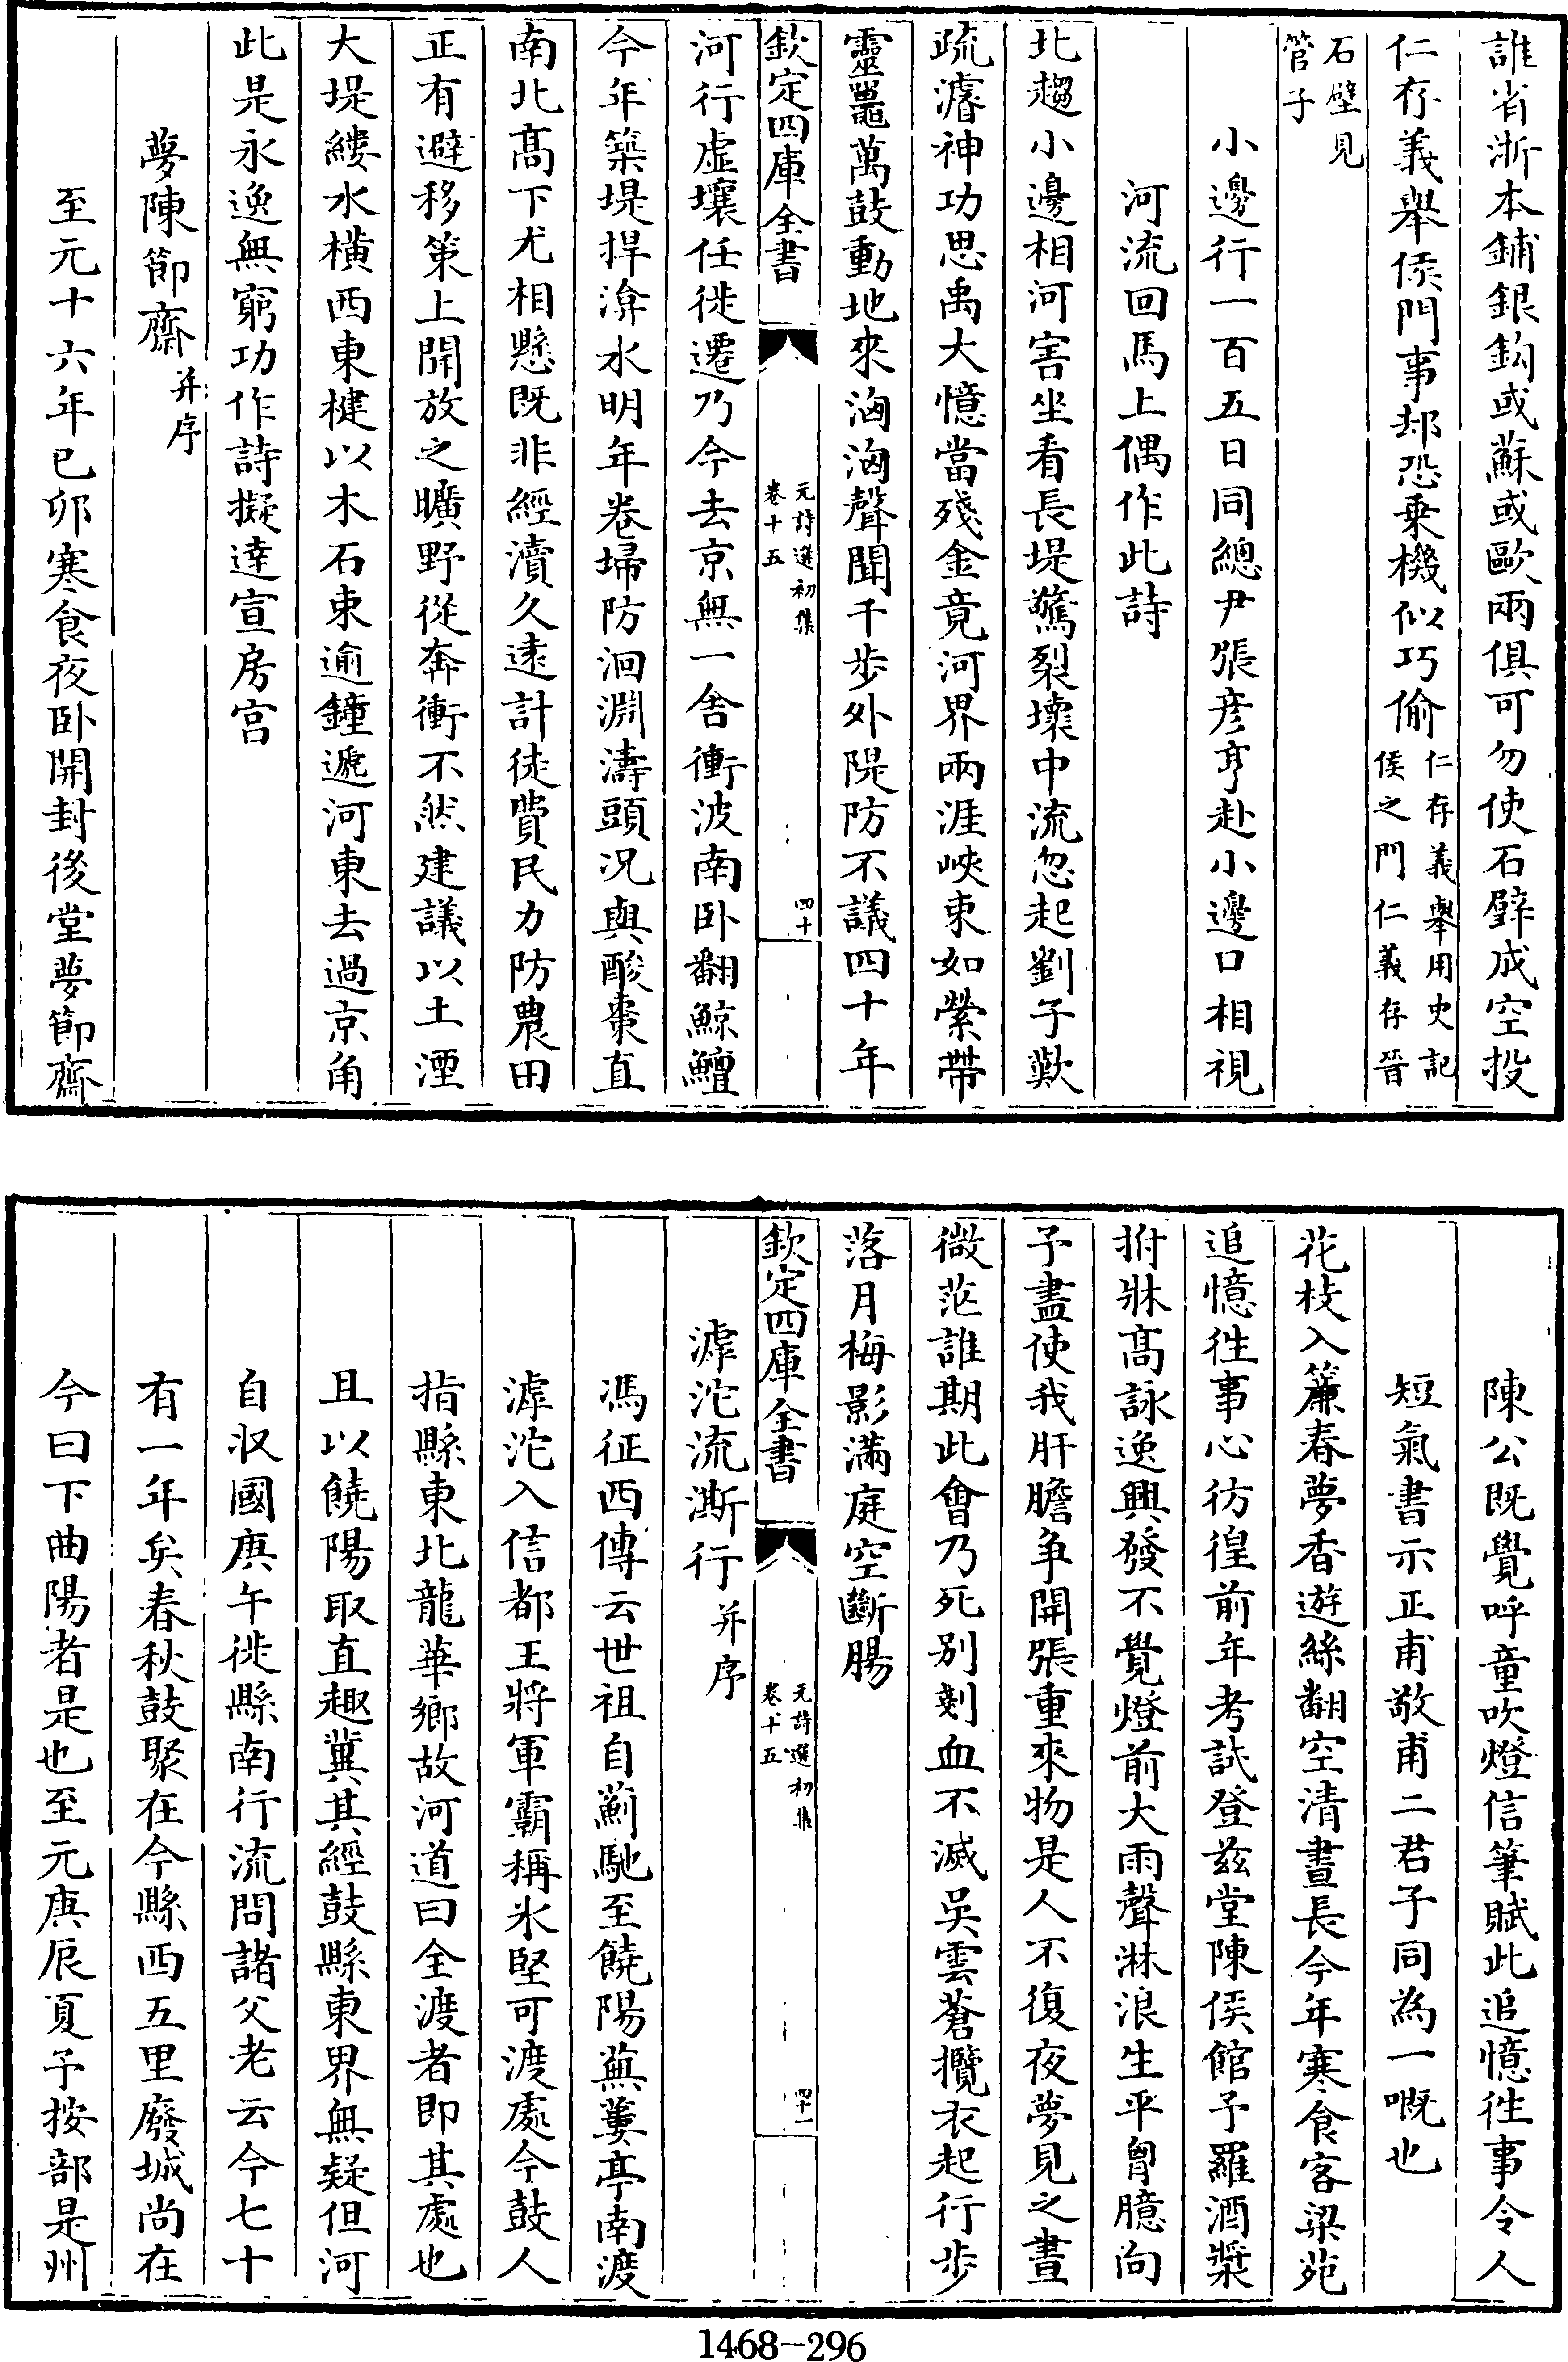 誰省浙本鋪銀鈎或蘇或歐兩俱可勿使石壁成空投
仁存義舉侯門事却恐乗機似巧偷仁存義舉用史記
侯之門仁義存晉
石壁見
管子
小邊行一百五日同總尹張彦亨赴小邊口相視
河流回馬上偶作此詩
北趨小邊相河害坐看長堤驚裂壊中流忽起劉子歎
疏濬神功思禹大憶當殘金竟河界兩涯峽束如縈帶
靈鼉萬鼓動地來洶洶聲聞千歩外隄防不議四十年
欽定四庫全書
元詩選初集
卷十五
四十
河行虛壤任徙遷乃今去京無一舍衝波南卧翻鯨鱣
今年築堤捍洚水明年卷埽防洄淵濤頭况與酸棗直
南北髙下尤相懸既非經瀆久逺計徒費民力防農田
正有避移策上開放之曠野從奔衝不然建議以土湮
大堤縷水橫西東楗以木石束逾鐘遞河東去過京角
此是永逸無窮功作詩擬達宣房宫
夢陳節齋并序
至元十六年已卯寒食夜卧開封後堂夢節齋
陳公既覺呼童吹燈信筆賦此追憶徃事令人
短氣書示正甫敬甫二君子同為一嘅也
花枝入簾春夢香遊絲翻空清晝長今年寒食客梁苑
追憶徃事心彷徨前年考試登兹堂陳侯館予羅酒漿
拊牀髙詠逸興發不覺燈前大雨聲淋浪生平胷臆向
予盡使我肝膽争開張重來物是人不復夜夢見之晝
微茫誰期此㑹乃死别剗血不滅吳雲蒼攬衣起行歩
落月梅影滿庭空斷腸
欽定四庫全書
元詩選初集
卷十五
四十一
滹沱流澌行并序
馮征西傳云世祖自薊馳至饒陽蕪蔞亭南渡
滹沱入信都王將軍霸稱氷堅可渡處今鼓人
指縣東北龍華鄉故河道曰全渡者即其處也
且以饒陽取直趣冀其經鼓縣東界無疑但河
自収國庚午徙縣南行流問諸父老云今七十
有一年矣春秋鼓聚在今縣西五里廢城尚在
今曰下曲陽者是也至元庚辰夏予按部是州
1468-296